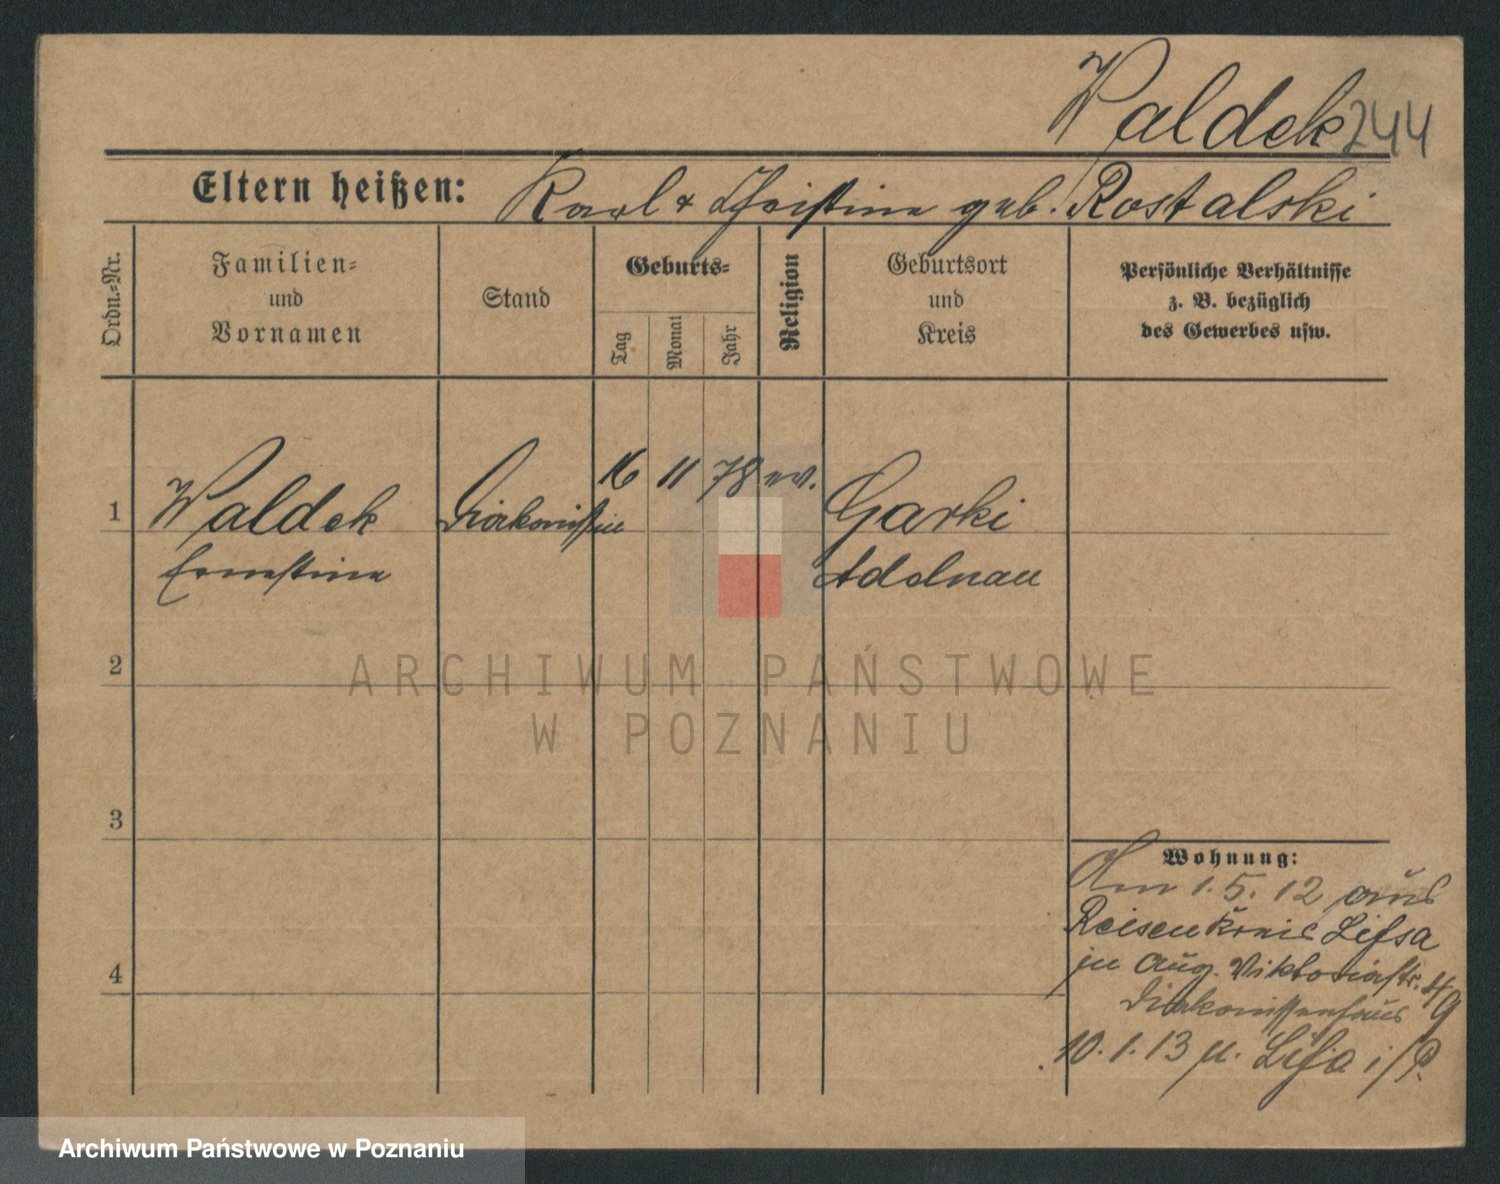 Waldek 244
Eltern heißen: Karl & Christine geb. Rostalski
Ordn.-Nr.
Familien-
und
Vornamen
Stand
Geburts-
Tag
Monat
Jahr
Religion
Geburtsort
und
Kreis
Persönliche Verhältnisse
z. B. bezüglich
des Gewerbes usw.
1 Waldek Diakonissin 16 11 78 ev. Garki
Ernestine Adelnau
2
ARCHIWUM PAŃSTWOWE
W POZNANIU
3
4
Wohnung:
Am 1.5.12 aus
Reisen Kreis Lissa
in Aug. Viktoriastr.
Diakonissenhaus
10.1.13 n. Lissa i/P.
Archiwum Państwowe w Poznaniu